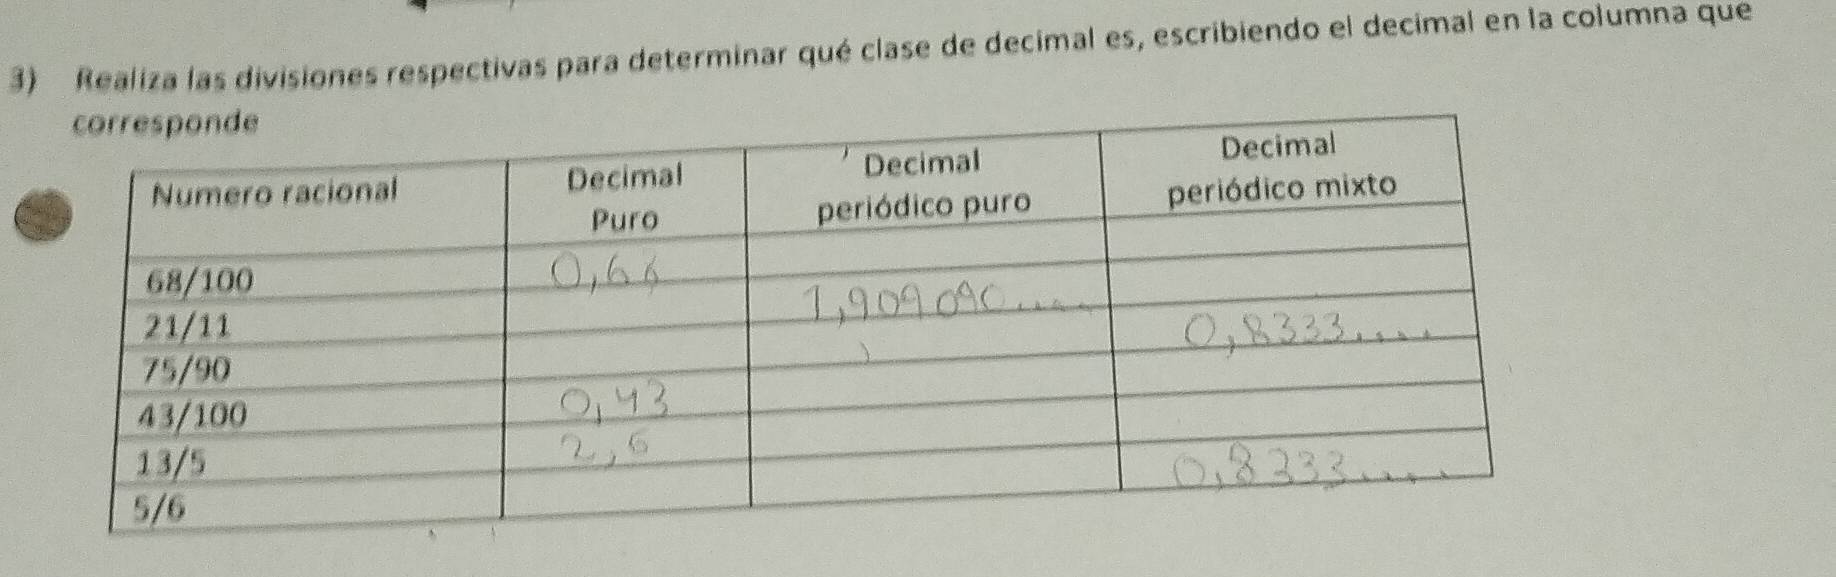 3) Realiza las divisiones respectivas para determinar qué clase de decimal es, escribiendo el decimal en la columna que
corresponde
Numero racional Decimal Puro Decimal periódico puro Decimal periódico mixto
68/100 0,68
21/11 1,909090....
75/90 0,8333....
43/100 0,43
13/5 2,6
5/6 0,8333....